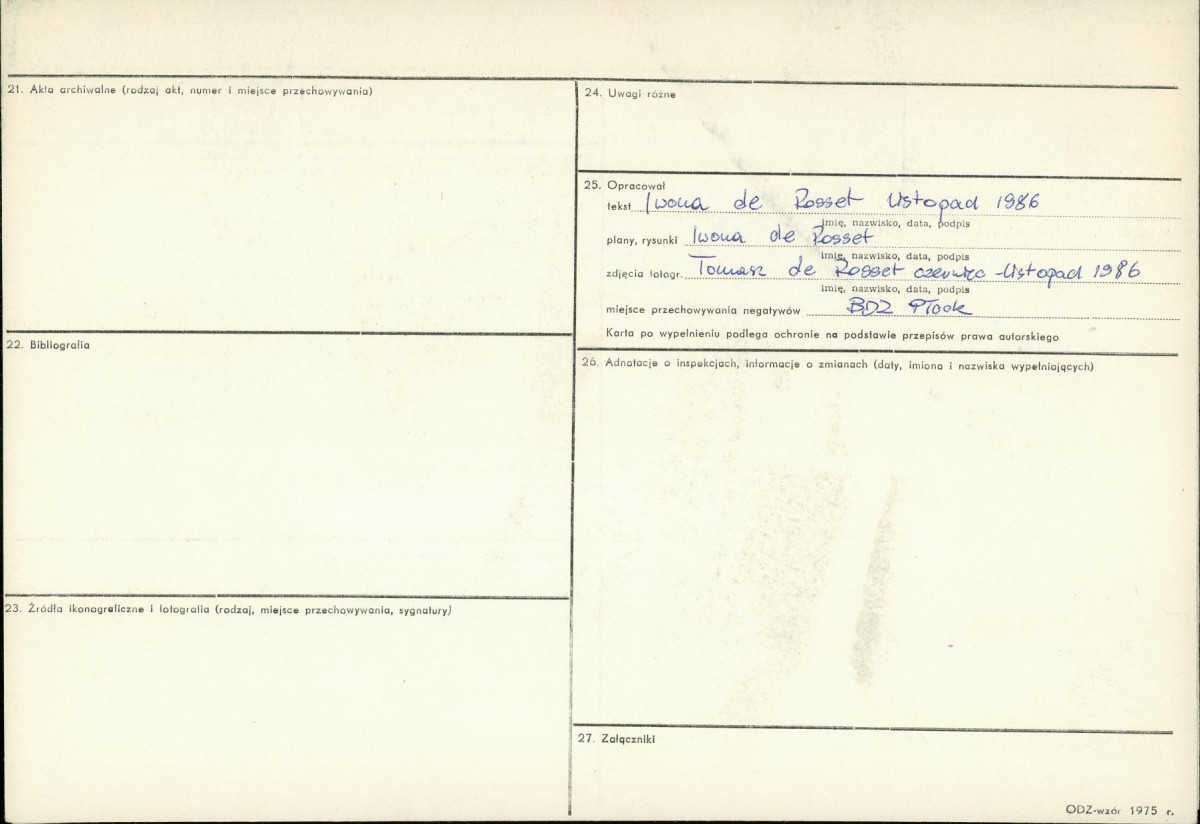 21. Akta archiwalne (rodzaj akt, numer i miejsce przechowywania)
22. Bibliografia
23. Źródła ikonograficzne i fotografia (rodzaj, miejsce przechowywania, sygnatury)
24. Uwagi różne
25. Opracował
tekst Iwona de Rosset listopad 1986
imię, nazwisko, data, podpis
plany, rysunki Iwona de Rosset
imię, nazwisko, data, podpis
zdjęcia fotogr. Tomasz de Rosset czerwiec - listopad 1986
imię, nazwisko, data, podpis
miejsce przechowywania negatywów BDZ Płock
Karta po wypełnieniu podlega ochronie na podstawie przepisów prawa autorskiego
26. Adnotacje o inspekcjach, informacje o zmianach (daty, imiona i nazwiska wypełniających)
27. Załączniki
ODZ-wzór 1975 r.